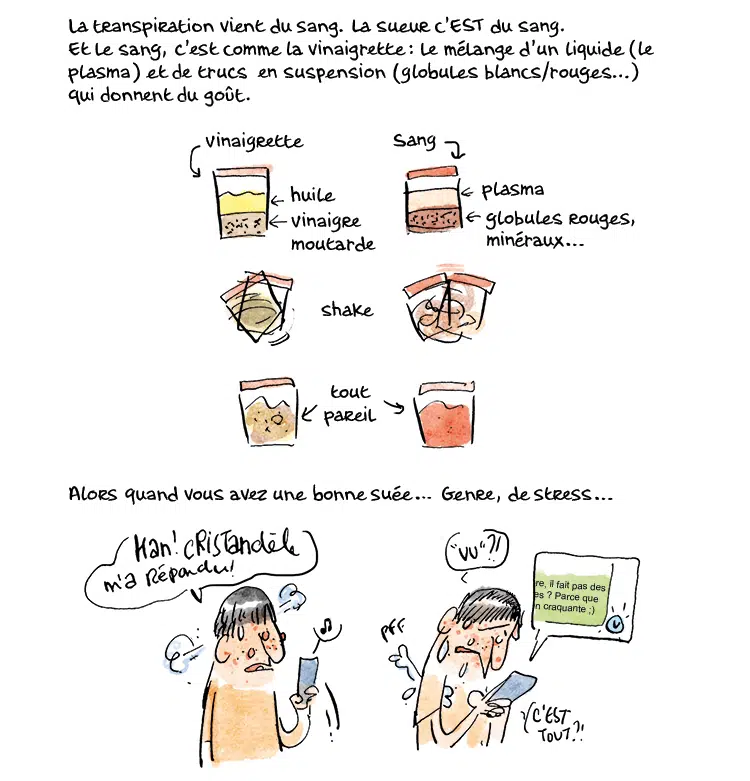 La transpiration vient du sang. La sueur c'EST du sang.
Et le sang, c'est comme la vinaigrette : Le mélange d'un liquide (le
plasma) et de trucs en suspension (globules blancs/rouges...)
qui donnent du goût.
vinaigrette
Sang
huile
vinaigre
moutarde
plasma
globules rouges,
minéraux...
shake
tout
pareil
Alors quand vous avez une bonne suée... Genre, de stress...
Han! CRISTandèle
m'a Répondu!
"VU"?!
re, il fait pas des
es ? Parce que
n craquante ;)
pff
C'EST
TOUT?!